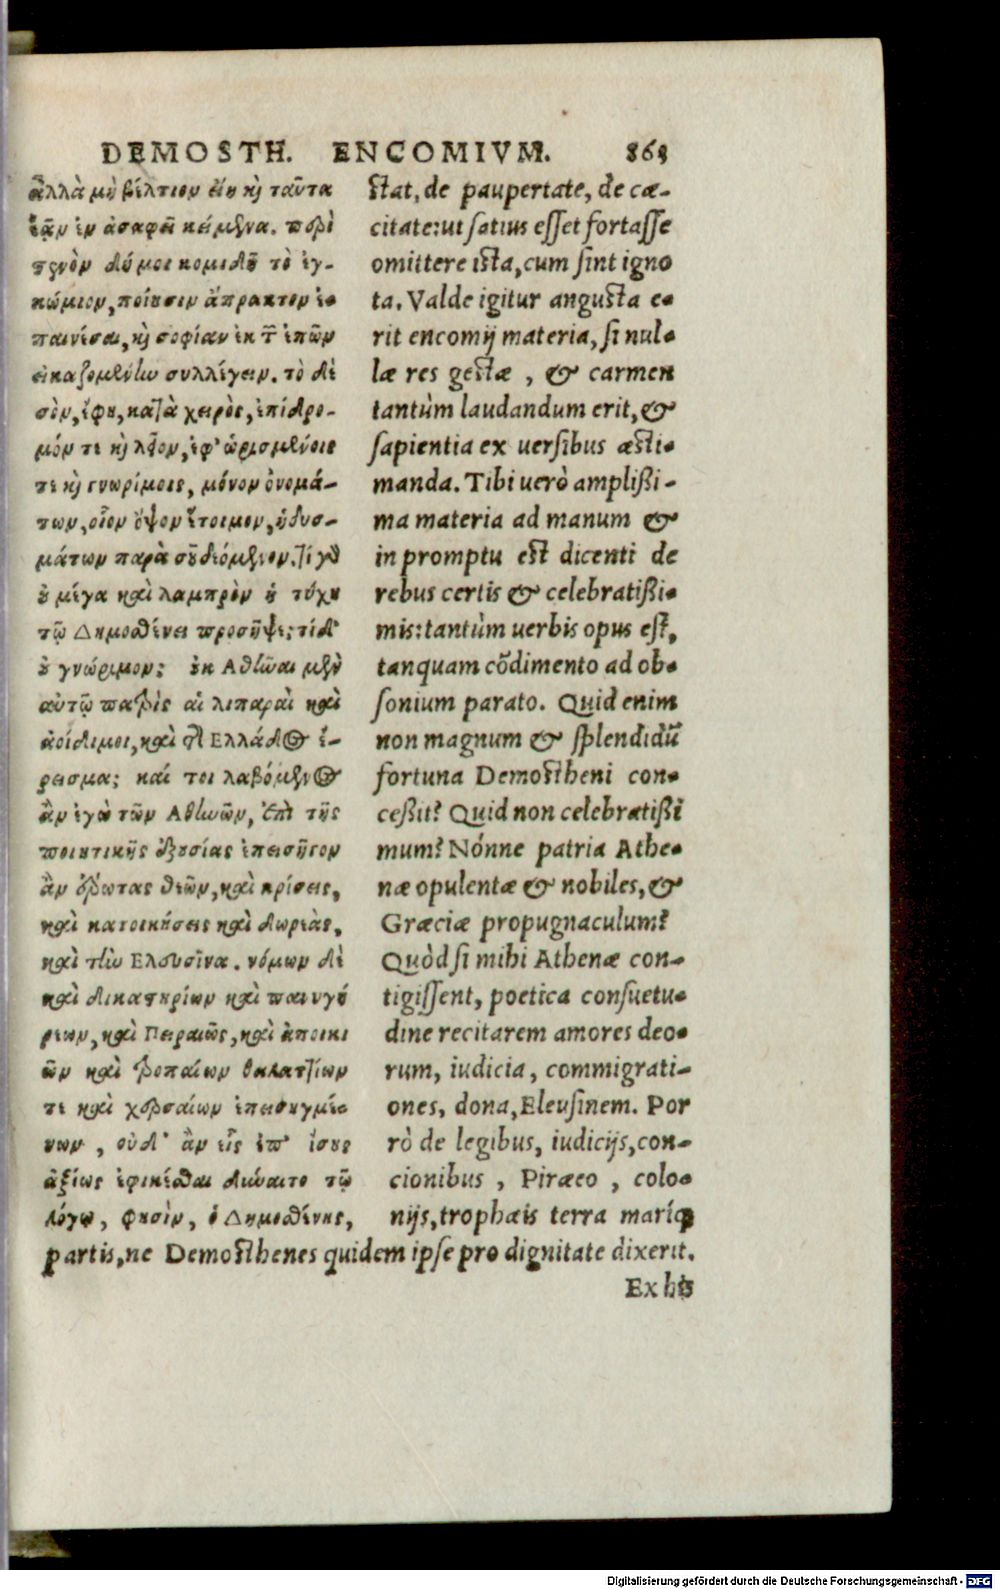 DEMOSTH. ENCOMIVM. 865
ἀλλὰ μὴ βέλτιον εἴη κỳ ταῦτα
ἐᾷν ἐν ἀσαφεῖ κείμενα. περὶ
στενὸν δή μοι κομιδῇ τὸ ἐγ-
κώμιον, ποίησιν ἄπρακτον ἐ-
παινέσαι, κỳ σοφίαν ἐκ τῶν ἐπῶν
εἰκαζομένlω συλλέγειν. τὸ δὲ
σὸν, ἔφη, κατὰ χειρὸς, ἐπίδρο-
μόν τε κỳ λεῖον, ἐφ᾽ ὡρισμένοις
τε κỳ γνωρίμοις, μόνον ὀνομά-
των, οἷον ὄψον ἕτοιμον, ἡδυσ-
μάτων παρὰ σοῦ δεόμενον. τί γὸ
ὀ μέγα καὶ λαμπρὸν ἡ τύχη
τῷ Δημοσθένει προσῆψε; τί δ᾽
ὀ γνώριμον; ὀκ Αθlῶαι μὲν
αὐτῷ πατρὶς αἱ λιπαραὶ καὶ
ἀοίδιμοι, καὶ τῆς Ελλάδος ἔ-
ρεισμα; καί τοι λαβόμενος
ἂν ἐγὼ τῶν Αθlωῶν, ἐπὶ τῆς
ποιητικῆς ἐξουσίας ἐπεισῆγον
ἂν ἔρωτας θεῶν, καὶ κρίσεις,
καὶ κατοικήσεις καὶ δωρεὰς,
καὶ τlὼ Ελευσῖνα. νόμων δὲ
καὶ δικαστηρίων καὶ πανηγύ
ρεων, καὶ Πειραιῶς, καὶ ἀποικι
ῶν καὶ τροπαίων θαλαττίων
τε καὶ χερσαίων ἐπεισηγμέ-
νων, οὐδ᾽ ἂν εἷς ἐπ᾽ ἴσης
ἀξίως ἐφικέσθαι δύναιτο τῷ
λόγῳ, φησὶν, ὁ Δημοσθένης,
stat, de paupertate, de cæ-
citate: ut satius esset fortasse
omittere ista, cum sint igno
ta. Valde igitur angusta e-
rit encomij materia, si nul-
læ res gestæ, & carmen
tantùm laudandum erit, &
sapientia ex uersibus æsti-
manda. Tibi uerò amplißi-
ma materia ad manum &
in promptu est dicenti de
rebus certis & celebratißi-
mis: tantùm uerbis opus est,
tanquam cōdimento ad ob-
sonium parato. Quid enim
non magnum & splendidũ
fortuna Demostheni con-
ceßit? Quid non celebratißi
mum? Nónne patria Athe-
næ opulentæ & nobiles, &
Græciæ propugnaculum?
Quòd si mihi Athenæ con-
tigissent, poetica consuetu-
dine recitarem amores deo-
rum, iudicia, commigrati-
ones, dona, Eleusinem. Por
rò de legibus, iudicijs, con-
cionibus, Piræeo, colo-
nijs, trophæis terra mariq́;
partis, ne Demosthenes quidem ipse pro dignitate dixerit.
Ex his
Digitalisierung gefördert durch die Deutsche Forschungsgemeinschaft - DFG